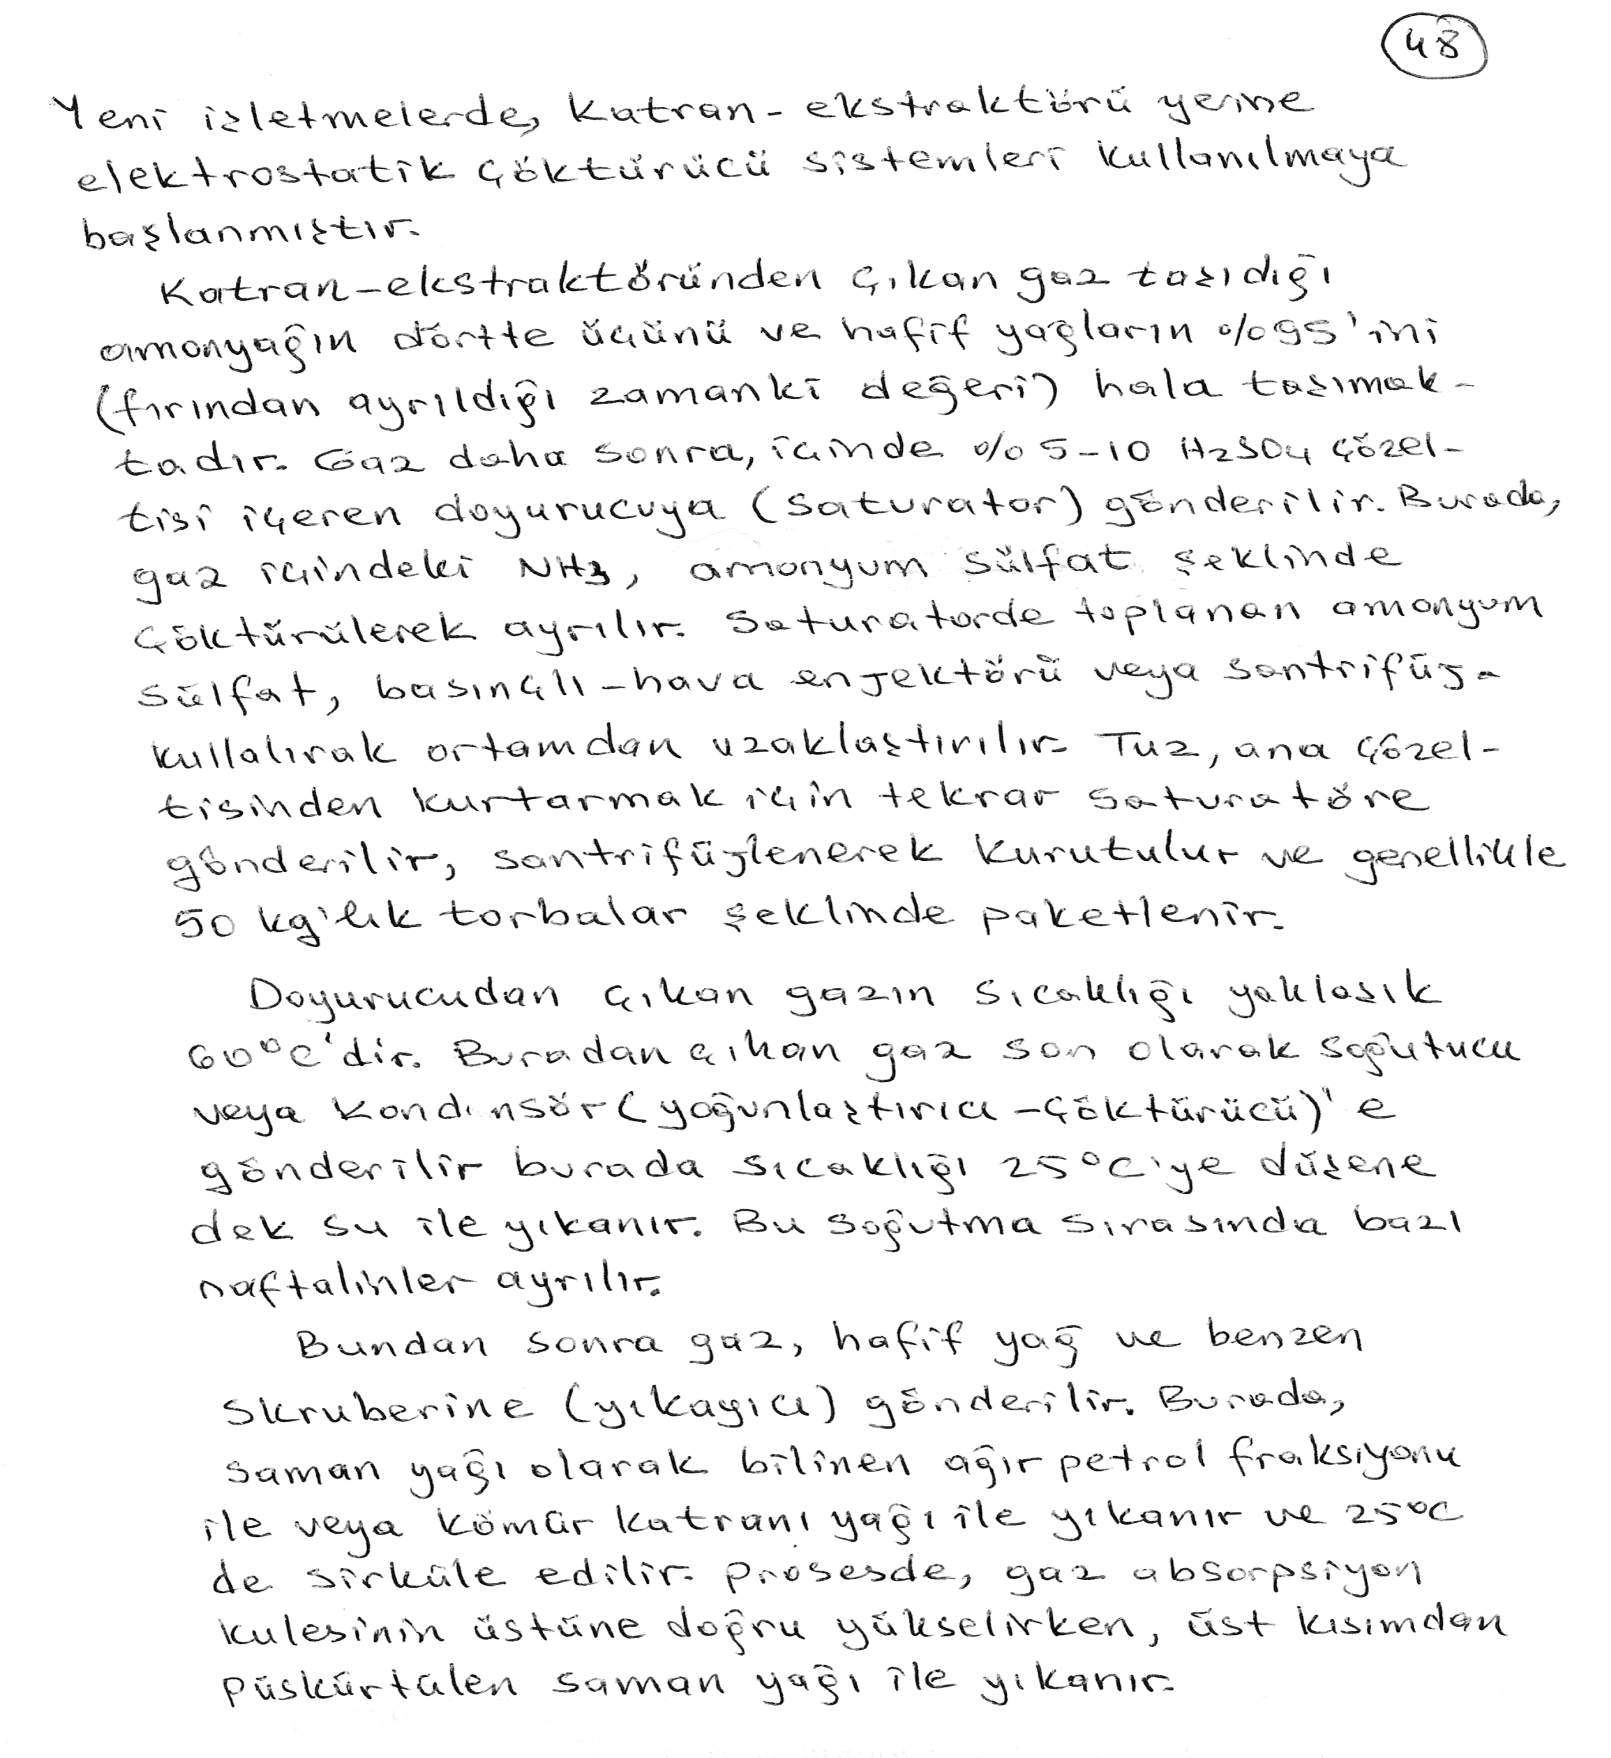 48
Yeni işletmelerde, Katran-ekstraktörü yerine
elektrostatik çöktürücü sistemleri kullanılmaya
başlanmıştır.
Katran-ekstraktöründen çıkan gaz taşıdığı
amonyağın dörtte üçünü ve hafif yağların %95'ini
(fırından ayrıldığı zamanki değeri) hala taşımak-
tadır. Gaz daha sonra, içinde %5-10 H2SO4 çözel-
tisi içeren doyurucuya (saturator) gönderilir. Burada,
gaz içindeki NH3, amonyum sülfat şeklinde
çöktürülerek ayrılır. Saturatorde toplanan amonyum
sülfat, basınçlı-hava enjektörü veya santrifüj-
kullalırak ortamdan uzaklaştırılır. Tuz, ana çözel-
tisinden kurtarmak için tekrar saturatöre
gönderilir, santrifüjlenerek kurutulur ve genellikle
50 kg'lık torbalar şeklinde paketlenir.
Doyurucudan çıkan gazın sıcaklığı yaklaşık
60°C'dir. Buradan çıkan gaz son olarak soğutucu
veya kondinsör (yoğunlaştırıcı-çöktürücü)'e
gönderilir burada sıcaklığı 25°C'ye düşene
dek su ile yıkanır. Bu soğutma sırasında bazı
naftalinler ayrılır.
Bundan sonra gaz, hafif yağ ve benzen
skruberine (yıkayıcı) gönderilir. Burada,
saman yağı olarak bilinen ağır petrol fraksiyonu
ile veya kömür katranı yağı ile yıkanır ve 25°C
de sirküle edilir. Prosesde, gaz absorpsiyon
kulesinin üstüne doğru yükselirken, üst kısımdan
püskürtülen saman yağı ile yıkanır.